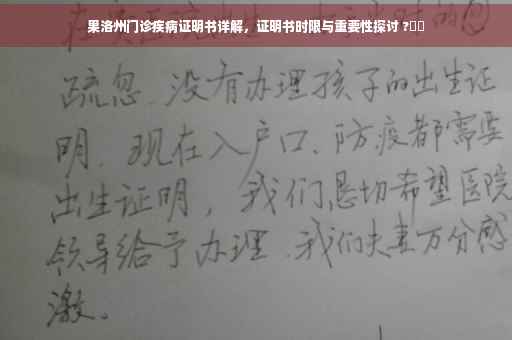 果洛州门诊疾病证明书详解，证明书时限与重要性探讨 ?
疏忽、没有办理孩子的出生证
明、现在入户口、防疫都需要
出生证明，我们恳切希望医院
领导给予办理、我们夫妻万分感
激。